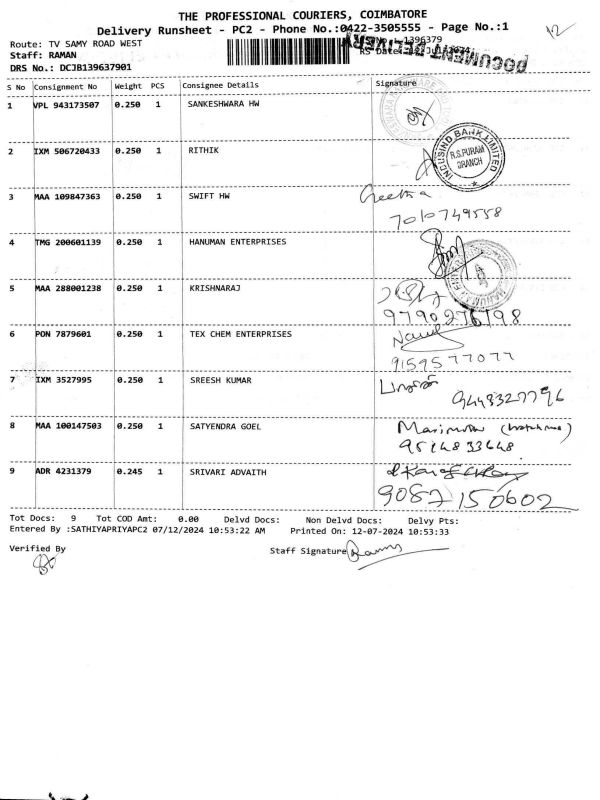 THE PROFESSIONAL COURIERS, COIMBATORE
Delivery Runsheet - PC2 - Phone No.:0422-3505555 - Page No.:1
12
Route: TV SAMY ROAD WEST
Staff: RAMAN
DRS No.: DCJB139637901
1396379
RS Date
DOCUMENT DELIVERY
S No Consignment No Weight PCS Consignee Details Signature
1 VPL 943173507 0.250 1 SANKESHWARA HW
2 IXM 506720433 0.250 1 RITHIK
INDUSIND BANK LIMITED
R.S.PURAM
BRANCH
3 MAA 109847363 0.250 1 SWIFT HW
Geetha
7010749558
4 TMG 200601139 0.250 1 HANUMAN ENTERPRISES
5 MAA 288001238 0.250 1 KRISHNARAJ
9790276798
6 PON 7879601 0.250 1 TEX CHEM ENTERPRISES
9159577077
7 IXM 3527995 0.250 1 SREESH KUMAR
9448327796
8 MAA 100147503 0.250 1 SATYENDRA GOEL
9514833648
9 ADR 4231379 0.245 1 SRIVARI ADVAITH
9087150602
Tot Docs: 9 Tot COD Amt: 0.00 Delvd Docs: Non Delvd Docs: Delvy Pts:
Entered By :SATHIYAPRIYAPC2 07/12/2024 10:53:22 AM Printed On: 12-07-2024 10:53:33
Verified By
Staff Signature Raman